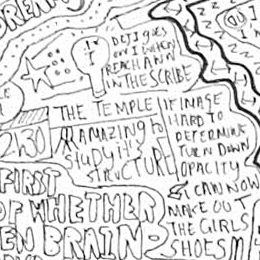 DREAM
"DEJ1 goes
on I WHEN
REACH ANN
IN THE SCRIBE
THE TEMPLE
2430
AMAZING to
STUDY it's
STRUCTURE
IF IMAGE
HARD TO
DETERMINE
TURN DOWN
OPACITY
I CAN NOW
MAKE OUT
THE GIRLS
SHOES!!
FIRST
OF WHETHER
EN BRAIN